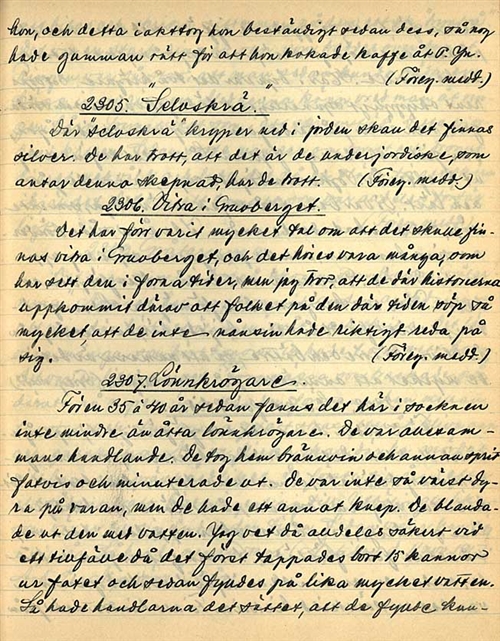 hon, och detta iakttog hon beständigt sedan dess, så nog
hade gumman rätt för att hon kokade kaffe åt P. Yn.
(Föreg. medd.)
2305. "Selvskrä."
Där "selvskrä" kryper ned i jorden skau det finnas
silver. De har trott, att det är de underjordiske, som
antar denna skepnad, har de trott. (Föreg. medd.)
2306. Vitra i Gruvberget.
Det har förr varit mycket tal om att det skulle fin-
nas vitra i Gruvberget, och det höres vara många, som
har sett den i forna tider, men jag tror, att de där historierna
uppkommit därav att folket på den där tiden söp så
mycket, att de inte nånsin hade riktigt reda på
sig. (Föreg. medd.)
2307. Lönnkrögare.
För en 35 à 40 år sedan fanns det här i socknen
inte mindre än åtta lönnkrögare. De var allesam-
mans handlande. De tog hem brännvin och annan sprit
fatvis och minuterade ut. De var inte så värst dy-
ra på varan, men de hade ett annat knep. De blanda-
de ut den med vatten. Jag vet då alldeles säkert vid
ett tillfälle då det först tappades bort 15 kannor
ur fatet och sedan fylldes på lika mycket vatten.
Så hade handlarna det sättet, att de fyllde kan-